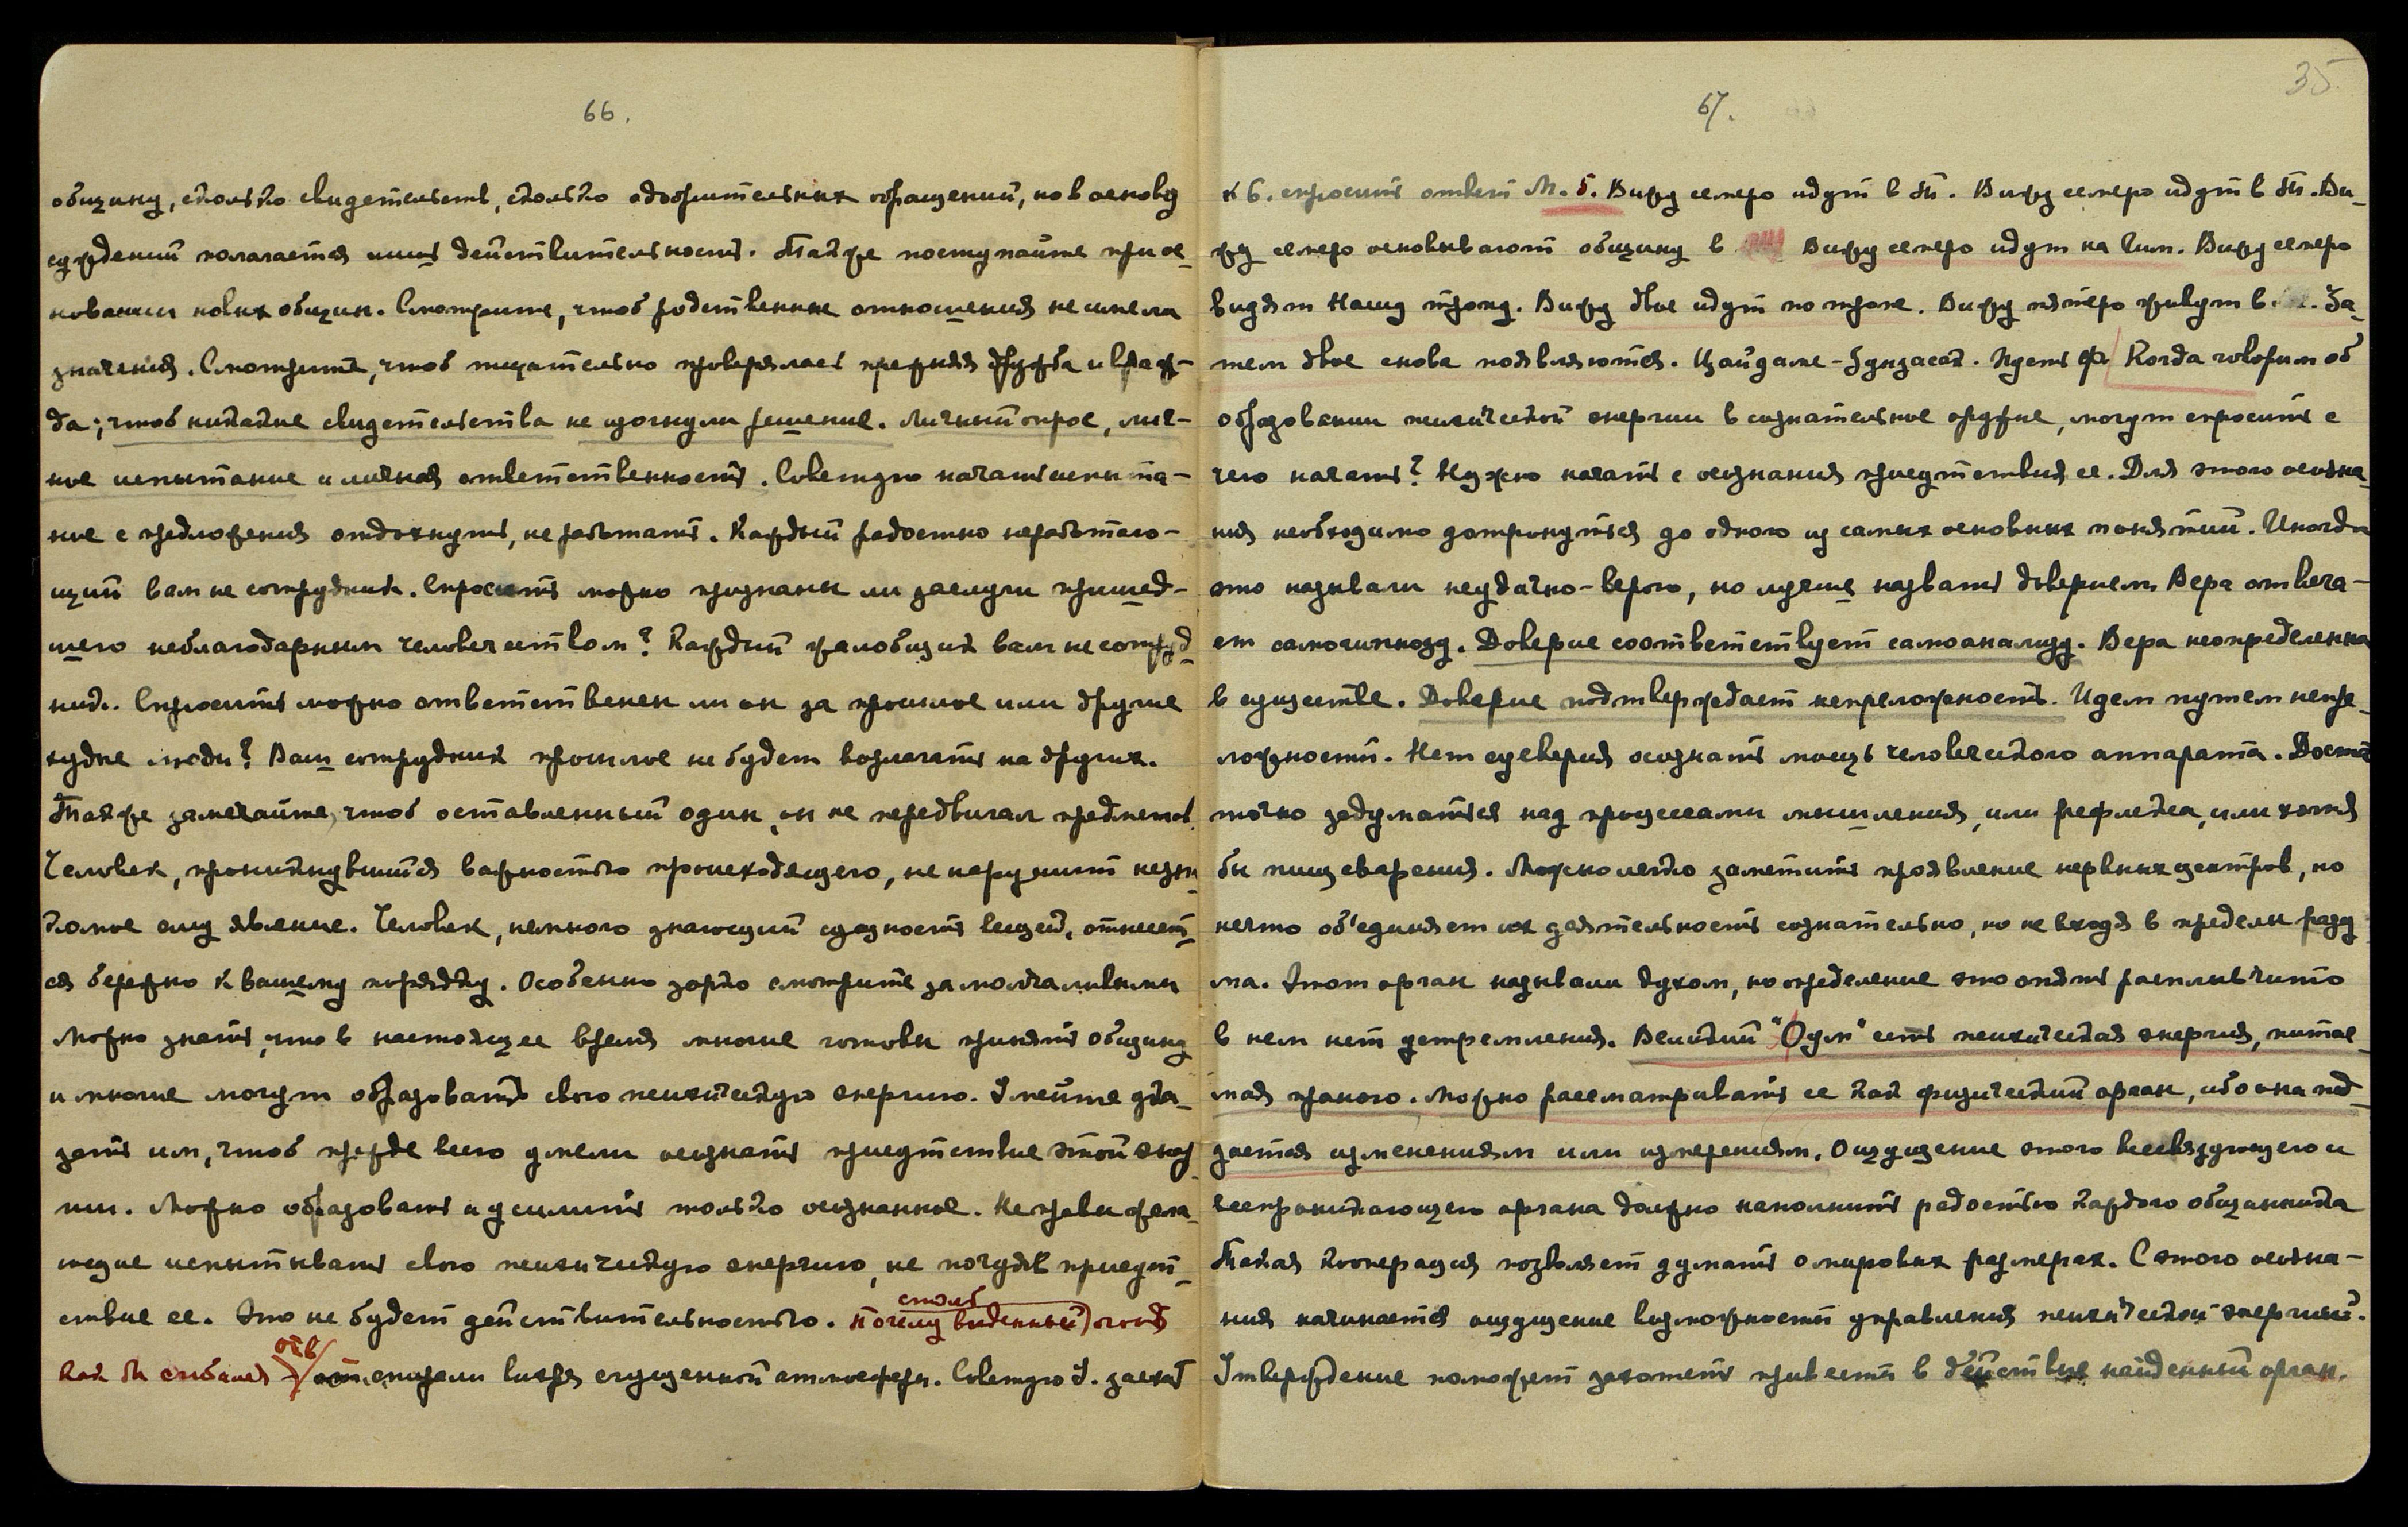 66.
общину, сколько свидетельств, сколько одобрительных обращений, но в основу
суждений полагается лишь действительность. Также поступайте при ос-
новании новых общин. Смотрите, чтоб родственные отношения не имели
значения. Смотрите, чтоб тщательно проверялась прежняя дружба и враж-
да; чтоб никакие свидетельства не изогнули решение. Личный опрос, лич-
ное испытание и личная ответственность. Советую начать испыта-
ние с предложения отдохнуть, не работать. Каждый радостно неработаю-
щий вам не сотрудник. Спросить можно признаны ли заслуги пришед-
шего неблагодарным человечеством? Каждый жалобщик вам не сотруд-
ник. Спросить можно ответственен ли он за прошлое или другие
худые люди? Ваш сотрудник прошлое не будет возлагать на других.
Также замечайте, чтоб оставленный один, он не передвигал предметов.
Человек, проникнувшийся важностью происходящего, не нарушит незна-
комое ему явление. Человек, немного знающий сущность вещей, отнесет-
ся бережно к вашему порядку. Особенно зорко смотрите за молчаливыми
Можно знать, что в настоящее время многие готовы принять общину
и многие могут образовать свою психическую энергию. Умейте ска-
зать им, чтоб прежде всего умели осознать присутствие этой энер
гии. Можно образовать и усилить только осознанное. Не правы жела-
ющие испытывать свою психическую энергию, не почуяв присут-
ствие ее. Это не будет действительностью. Почему виденный огонь
столб
как бы сгибался
от спирали вихря сгущенной атмосферы. Советую У. заехать
35
67.
к Б. спросить ответ М. Б. Вижу семеро идут в Т. Вижу семеро идут в Т. Ви-
жу семеро основывают общину в Вижу семеро идут на Гим. Вижу семеро
видят Нашу тропу. Вижу двое идут по тропе. Вижу пятеро живут в За-
тем двое снова появляются. Цайдаме - Идет Ф. Когда говорим об
образовании психической энергии в сознательное орудие, могут спросить с
чего начать? Нужно начать с осознания присутствия ее. Для этого осозна-
ния необходимо дотронуться до одного из самых основных понятий. Иногда
это называли неудачно - верою, но лучше назвать доверием. Вера отвеча-
ет самогипнозу. Доверие соответствует самоанализу. Вера неопределенна
в существе. Доверие подтверждает непреложность. Идем путем непре-
ложности. Нет суеверия осознать мощь человеческого аппарата. Доста
точно задуматься над процессами мышления, или рефлекса, или хотя
бы пищеварения. Можно легко заметить проявление нервных центров, но
нечто об'единяет их деятельность сознательно, но не входя в пределы разу
ма. Этот орган называли духом, но определение это опять расплывчато
в нем нет устремления. Великий "Оум" есть психическая энергия, питае-
мая праною. Можно рассматривать ее как физический орган, ибо она под-
дается изменениям или измерениям. Ощущение этого всесвязующего и
всепроникающего органа должно наполнить радостью каждого общинника
Такая кооперация позволяет думать о мировых размерах. С этого осозна-
ния начинается ощущение возможности управления психической энергией.
Утверждение поможет захотеть привести в действие найденный орган.